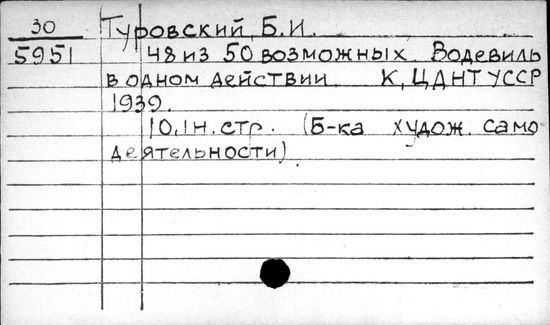 30 Туровский, Б.И.
5951 48 из 50 возможных. Водевиль
в одном действии. К, ЦДНТ УССР
1939.
10,1н.стр. (Б-ка худож. само
деятельности)